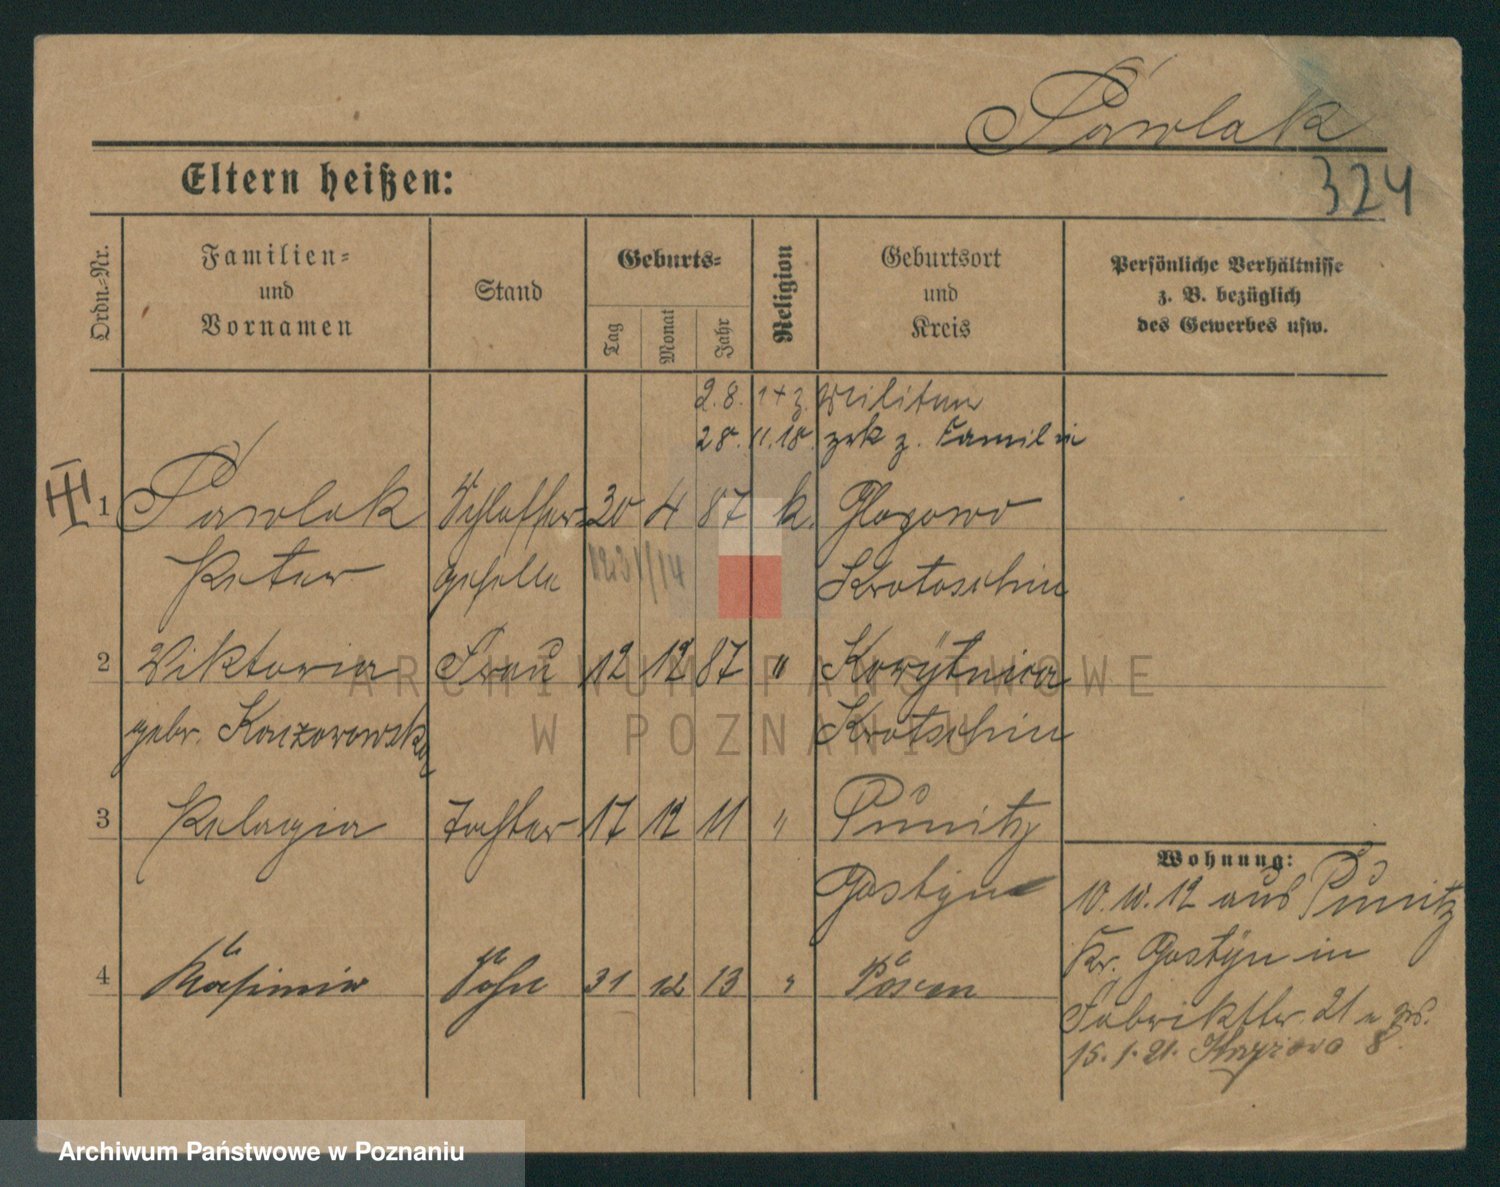 Pawlak
324
Eltern heißen:
Ordn.-Nr.
Familien- und Vornamen
Stand
Geburts-
Tag
Monat
Jahr
Religion
Geburtsort und Kreis
Persönliche Verhältnisse
z. B. bezüglich
des Gewerbes usw.
2.8. z. Militär
28.11.18. zrk z. Familie
1 Pawlak Schlosser 30 4 87 k. Glogowo
Peter geselle Krotoschin
2 Viktoria Frau 12 12 87 " Korytnica
gebr. Kaczorowska Krotschin
3 Pelagia Tochter 17 12 11 " Punitz
Gostyn
4 Kasimir Sohn 31 12 13 " Posen
Wohnung:
10.10.12 aus Punitz
Kr. Gostyn in
Fabrikstr. 21
15.1.21. 8
ARCHIWUM PAŃSTWOWE
W POZNANIU
Archiwum Państwowe w Poznaniu